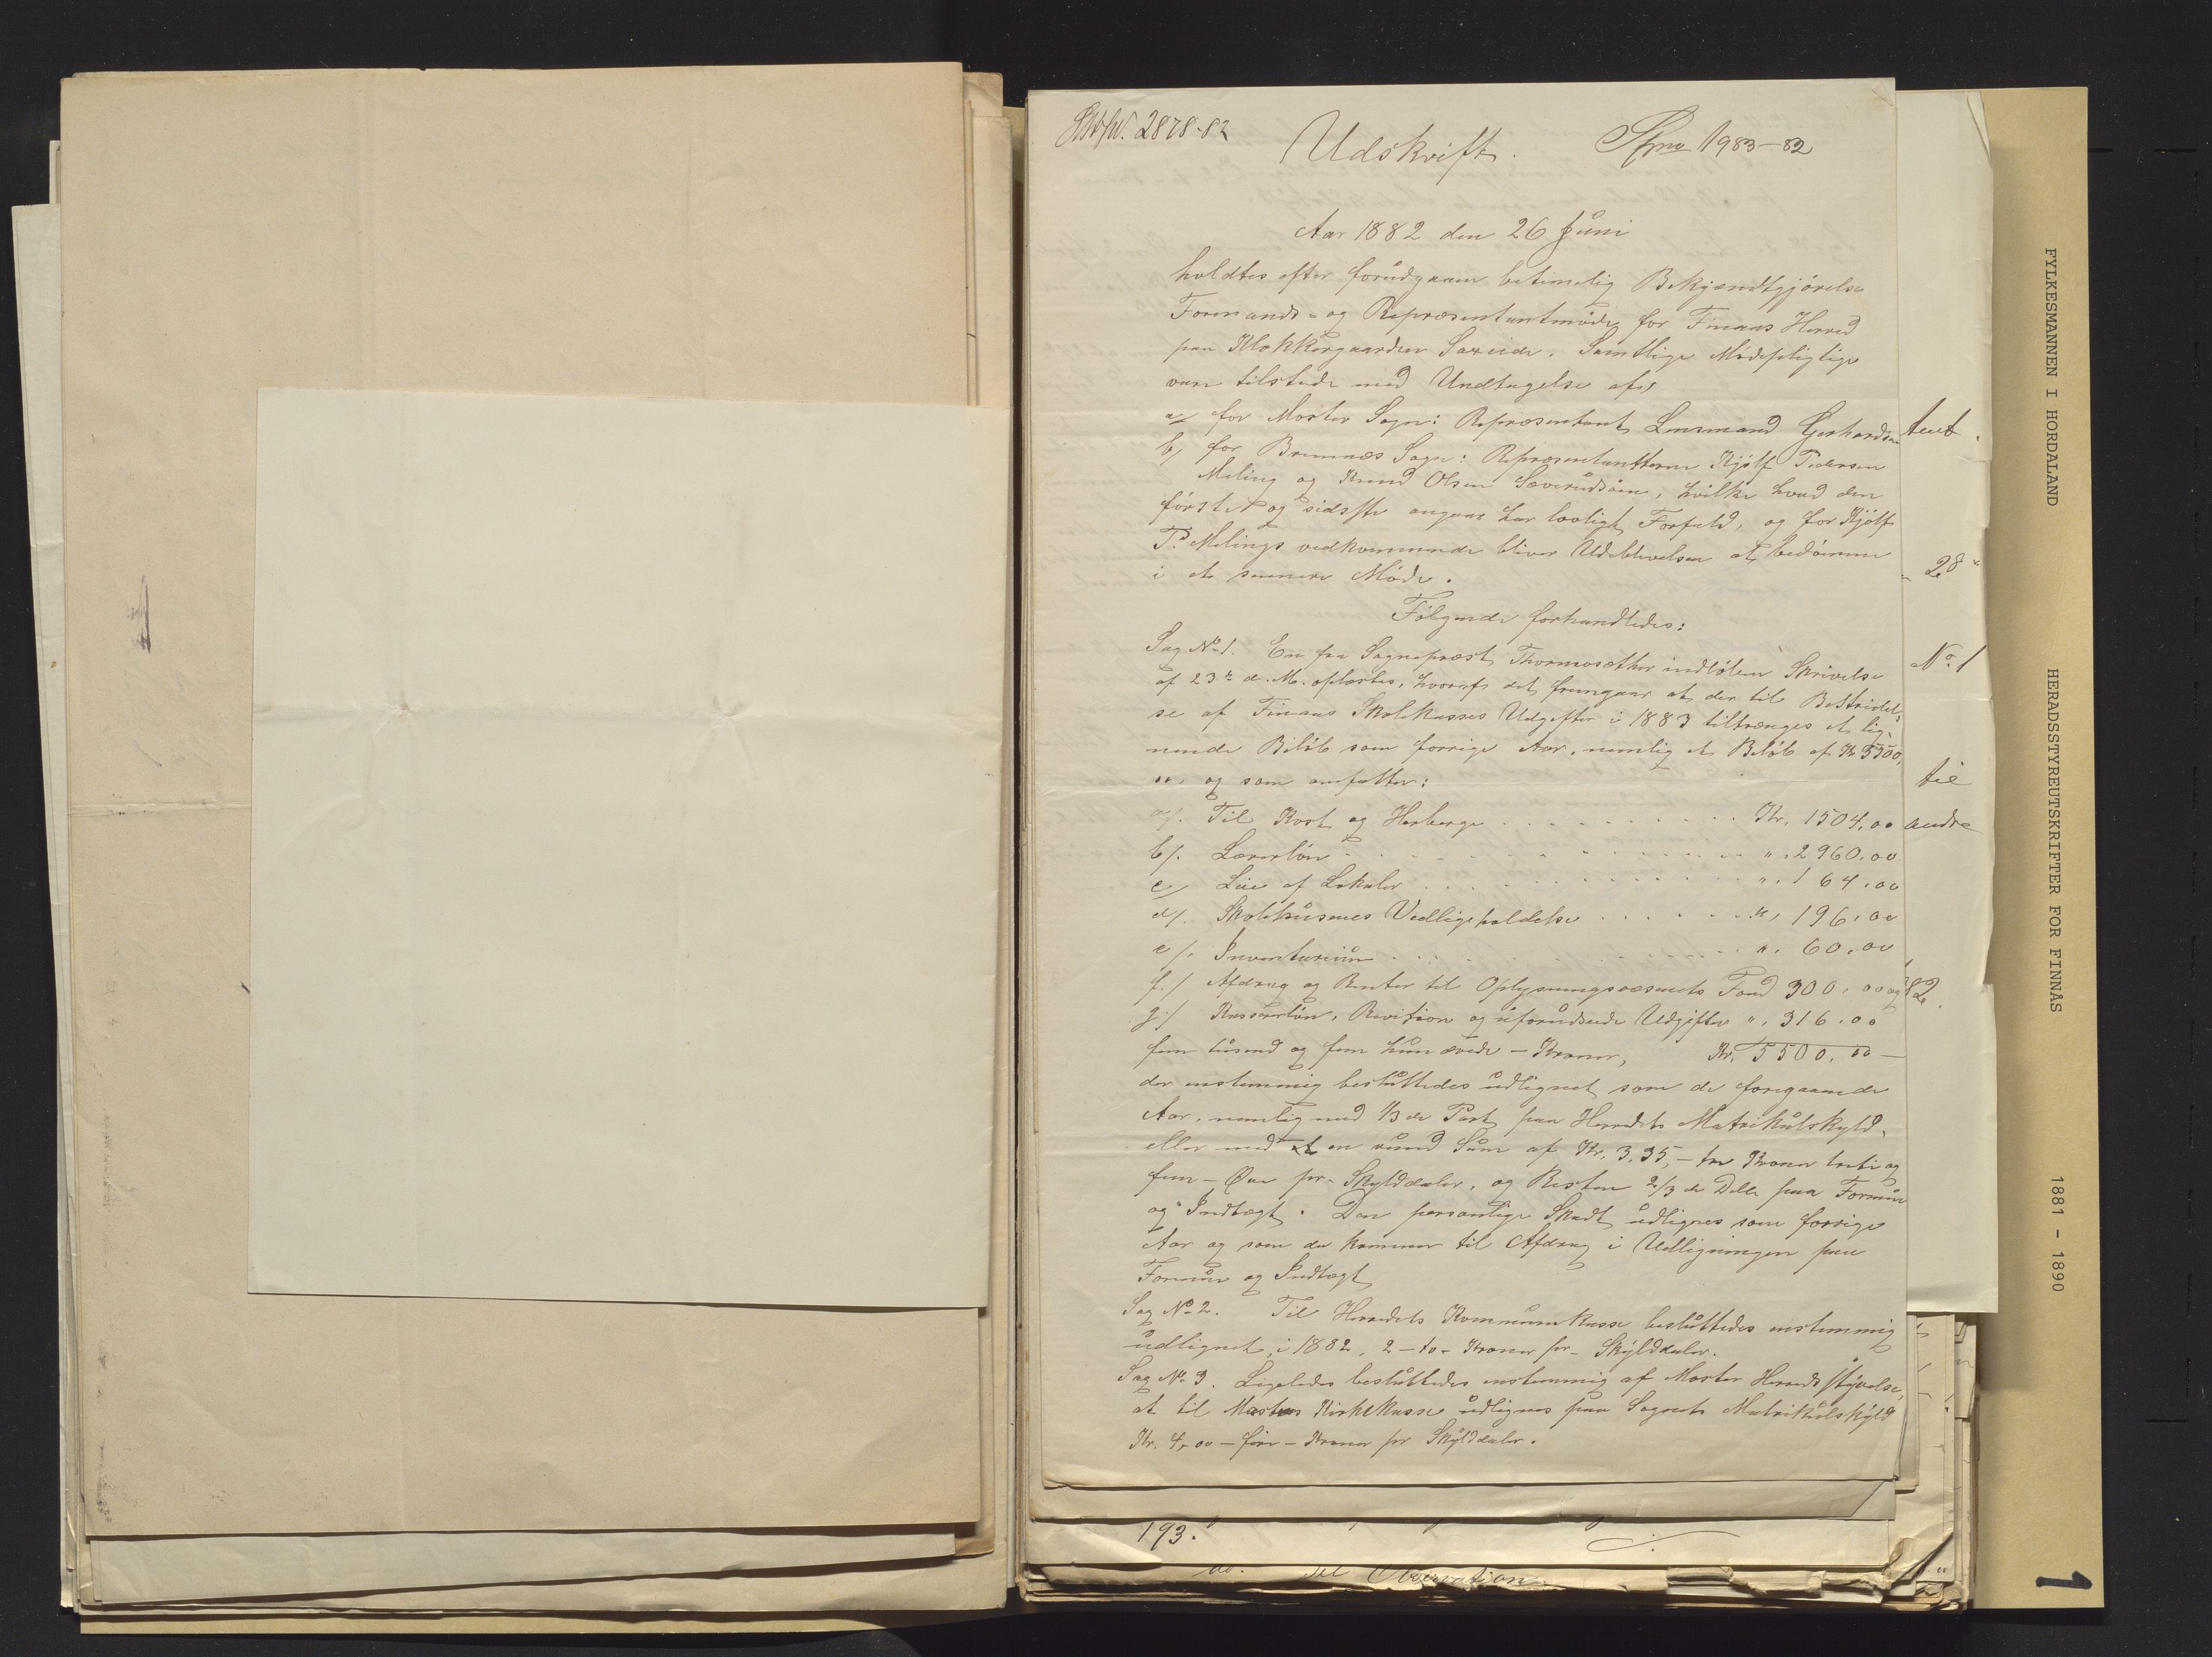 2878-82
Udskrift.
1983-82
Aar 1882 den 26 Juni
holdtes efter forudgaaen betimelig Bekjendtgjörelse
Formands- og Repræsentantmöde for Finaas Herred
paa Klokkergaarden Særeide. Samtlige Mödepligtige
vare tilstede med Undtagelse af,
a/ for Moster Sogn: Repræsentant Lensmand Gerhardsen
b/ for Bremnæs Sogn: Repræsentanterne Kjölf Pedersen
Meling og Knud Olsen Sæverudsöen, hvilke hvad den
förste og sidste angaar har lovligt Forfald, og for Kjölf
P. Melings vedkommende bliver Udeblivelsen at bedömme
i et senere Möde.
Fölgende forhandledes:
Sag No 1. En fra Sogneprest Thormosæther indlöben Skrivelse
af 23de d. M. oplæstes, hvoraf det fremgaar at der til Bestridel-
se af Finaas Skolekasses Udgifter i 1883 tiltrænges et lig-
nende Belöb som forrige Aar, nemlig et Belöb af Kr 5500,
00, og som omfatter:
a/. Til Kost og Herberge Kr. 1504,00
b/. Lærerlön " 2960,00
c/ Leie af Lokaler " 164,00
d/. Skolehusenes Vedligeholdelse " 196,00
e/. Inventarium " 60,00
f./ Afdrag og Renter til Oplysningsvæsenets Fond 300,00
g/ Kassererlön, Revision og uforudseede Udgifter " 316.00
fem tusend og fem hundrede - Kroner, Kr. 5500,00 -
der enstemmig besluttedes udlignet som de foregaaende
Aar, nemlig med 1/3 de Part paa Herredets Matrikulskyld,
eller med en rund Sum af Kr. 3,35, - tre Kroner treti og
fem - Öre pr. Skylddaler, og Resten 2/3 de Dele paa Formue
og Indtægt. Den personlige Skadt udlignes som forrige
Aar og som da kommer til Afdrag i Udligningen paa
Formue og Indtægt
Sag No 2. Til Herredets Kommunekasse besluttedes enstemmig
udlignet i 1882, 2 - to - Kroner pr. Skylddaler.
Sag No 3. Ligeledes besluttedes enstemmig af Moster Herredsstyrelse,
at til Mosters Kirkekasse udlignes paa Sognets Matrikulskyld
Kr. 4,00 - fire - Kroner pr Skylddaler.
28
No. 1
til
andre
82.
193.
do. til Observation
FYLKESMANNEN I HORDALAND
HERADSSTYREUTSKRIFTER FOR FINNÅS
1881 - 1890
1